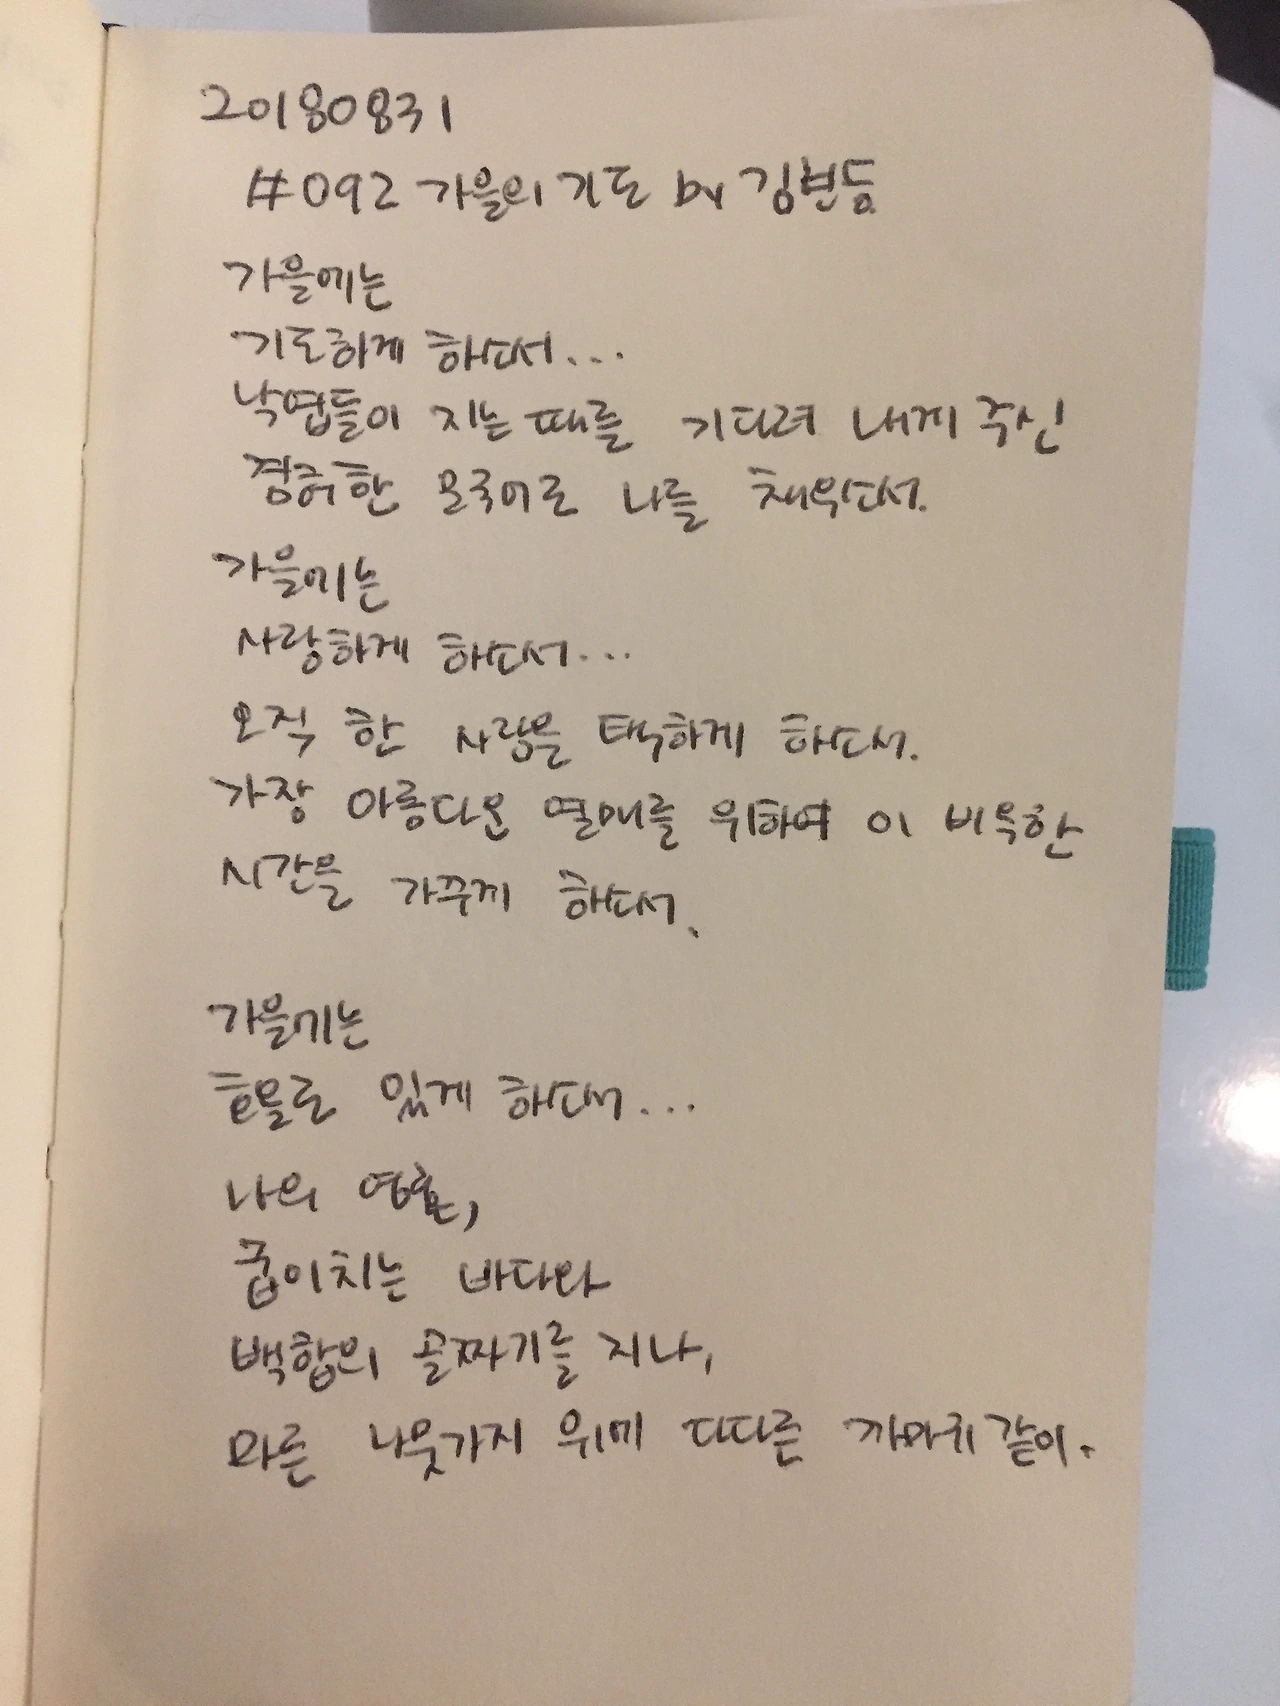 20180831
#092 가을의 기도 by 김현승
가을에는
기도하게 하소서...
낙엽들이 지는 때를 기다려 내게 주신
겸허한 모국어로 나를 채우소서.
가을에는
사랑하게 하소서...
오직 한 사람을 택하게 하소서.
가장 아름다운 열매를 위하여 이 비옥한
시간을 가꾸게 하소서.
가을에는
호올로 있게 하소서...
나의 영혼,
굽이치는 바다와
백합의 골짜기를 지나,
마른 나뭇가지 위에 다다른 까마귀같이.